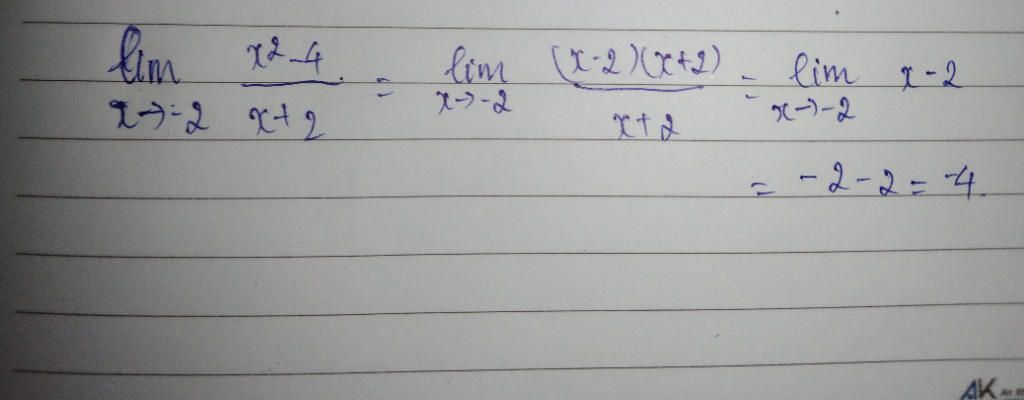 lim x→-2 x²-4 / x+2 = lim x→-2 (x-2)(x+2) / x+2 = lim x→-2 x-2
= -2-2 = -4.
AK